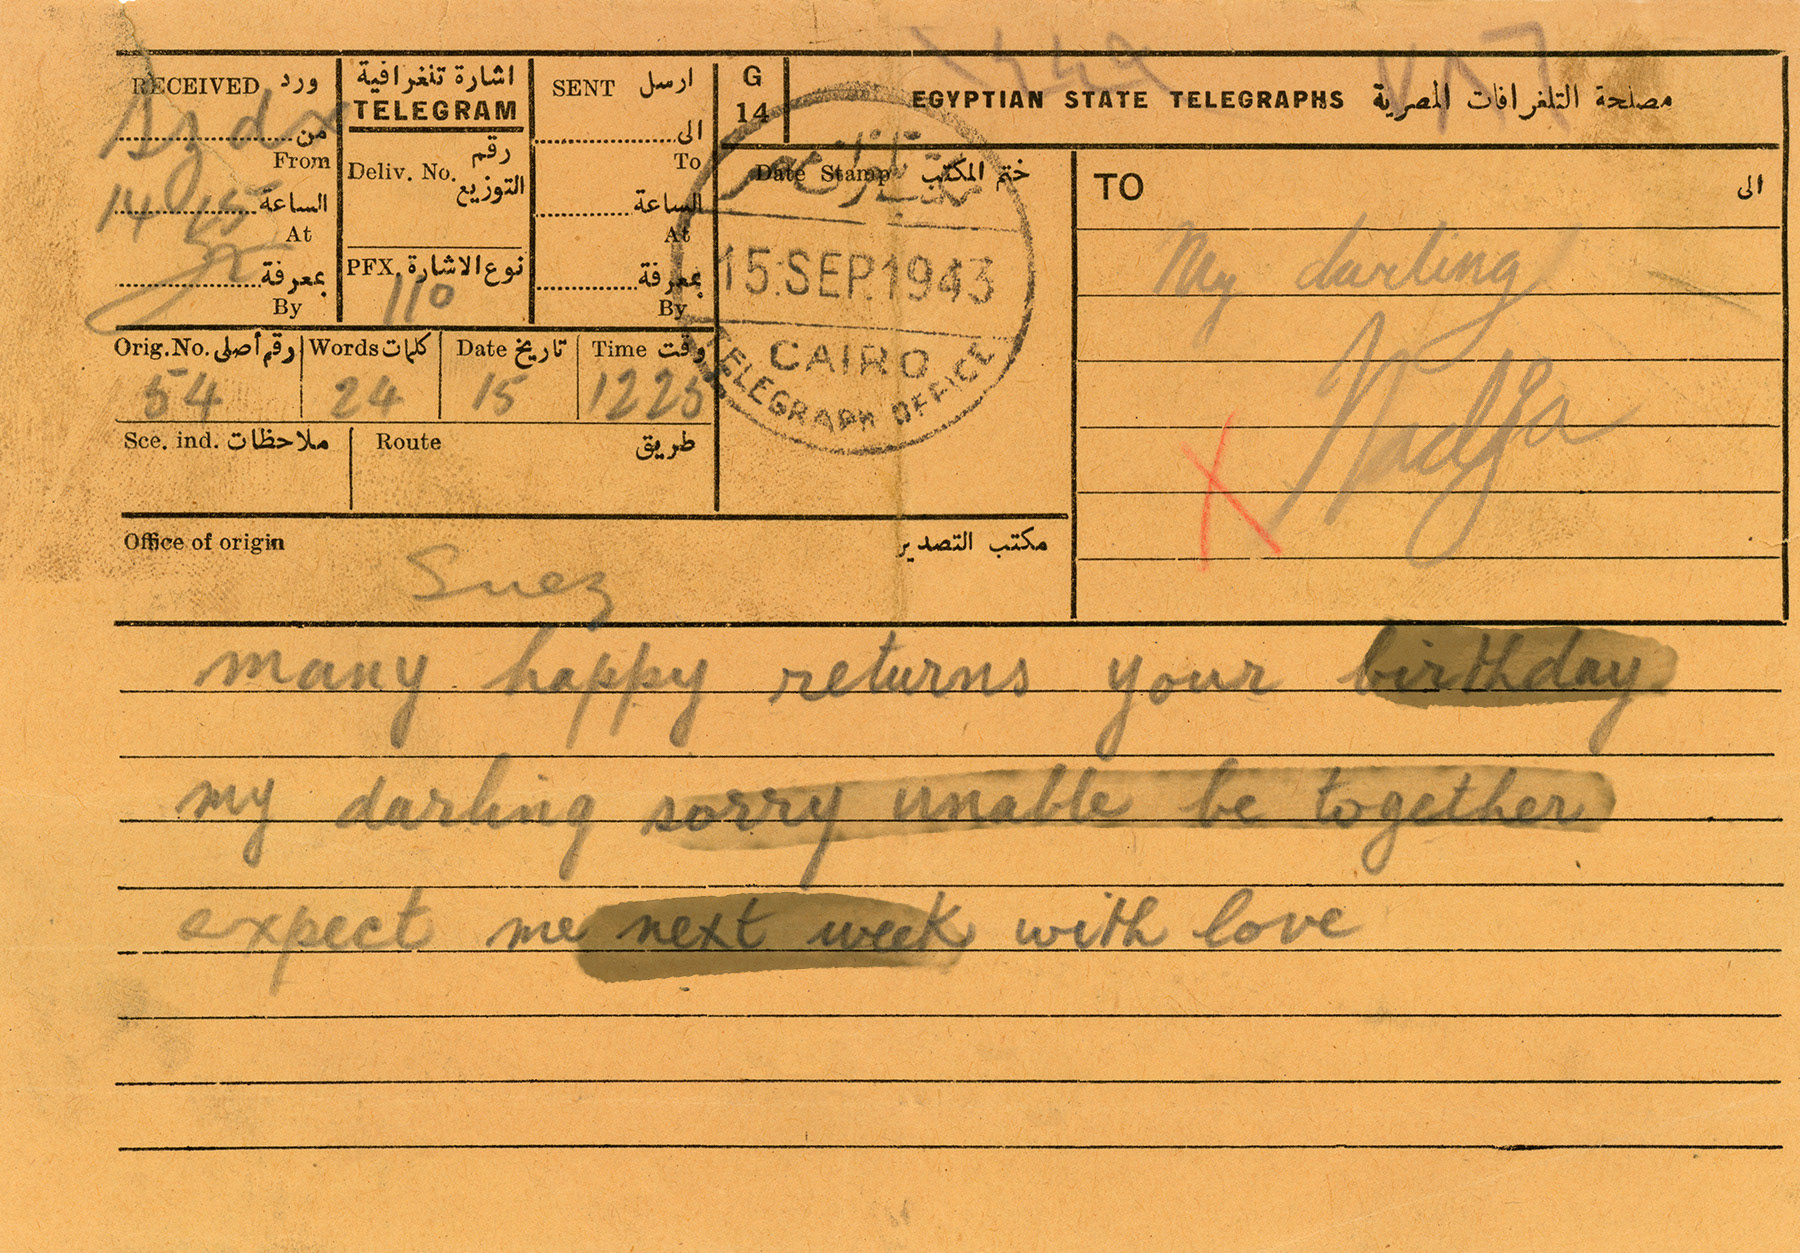 RECEIVED ورد
من
From
14 15
الساعة
At
بمعرفة
By
اشارة تلغرافية
TELEGRAM
رقم
Deliv. No. التوزيع
PFX. نوع الاشارة
110
SENT ارسل
الى
To
الساعة
At
بمعرفة
By
G
14
EGYPTIAN STATE TELEGRAPHS مصلحة التلغرافات المصرية
Date Stamp ختم المكتب
15.SEP.1943
CAIRO
TELEGRAPH OFFICE
TO الى
My darling
Nadja
X
Orig.No. رقم أصلى Words كلمات Date تاريخ Time وقت
54 24 15 1225
Sce. ind. ملاحظات Route طريق
Office of origin مكتب التصدير
Suez
many happy returns your birthday
my darling sorry unable be together
expect me next week with love